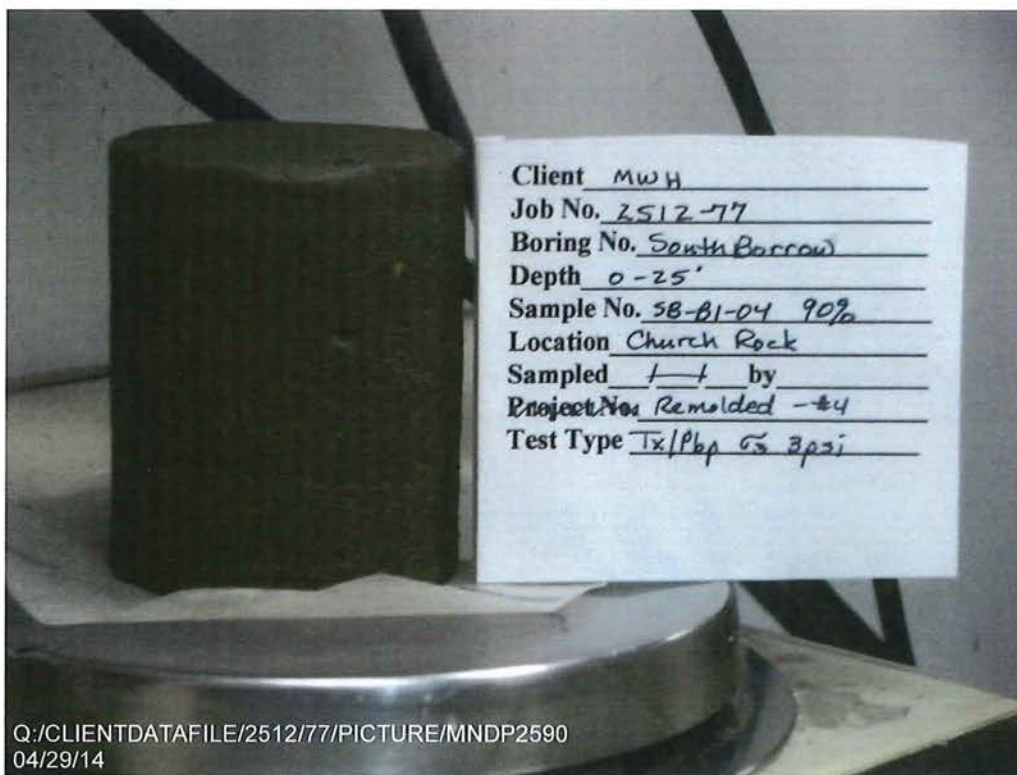 Client MWH
Job No. 2512-77
Boring No. South Borrow
Depth 0-25'
Sample No. SB-B1-04 90%
Location Church Rock
Sampled / / by
Project No. Remolded -#4
Test Type Tx/Pbp σ3 3psi
Q:/CLIENTDATAFILE/2512/77/PICTURE/MNDP2590
04/29/14